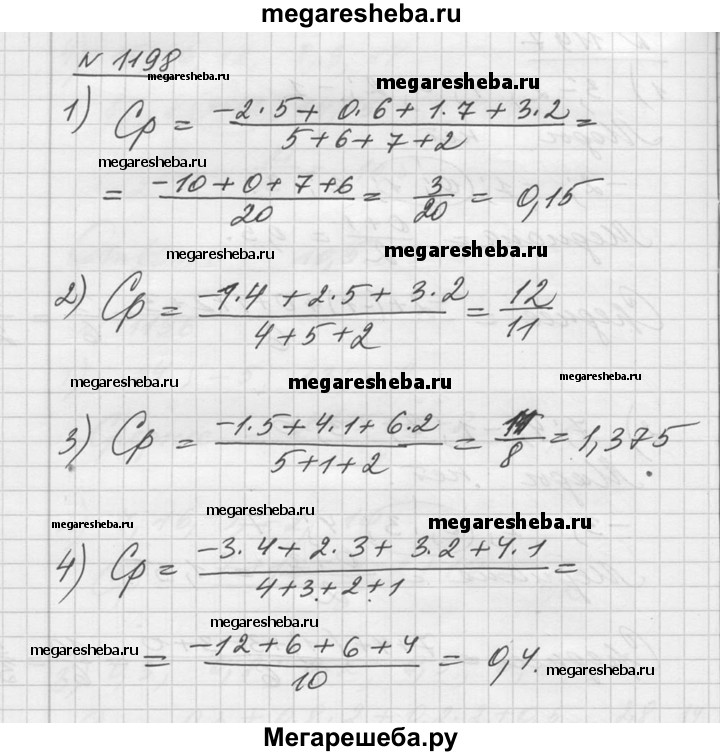 megaresheba.ru
N 1198
megaresheba.ru
megaresheba.ru
1) Ср = (-2·5 + 0·6 + 1·7 + 3·2)/(5+6+7+2) =
megaresheba.ru
= (-10+0+7+6)/20 = 3/20 = 0,15
megaresheba.ru
megaresheba.ru
2) Ср = (-1·4 + 2·5 + 3·2)/(4+5+2) = 12/11
megaresheba.ru
megaresheba.ru
megaresheba.ru
3) Ср = (-1·5+4·1+6·2)/(5+1+2) = 11/8 = 1,375
megaresheba.ru
megaresheba.ru
megaresheba.ru
4) Ср = (-3·4+2·3+3·2+4·1)/(4+3+2+1) =
megaresheba.ru
megaresheba.ru
= (-12+6+6+4)/10 = 0,4.
megaresheba.ru
Мегарешеба.ру